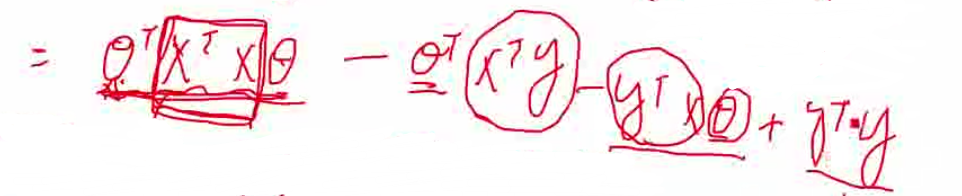 = θᵀXᵀXθ − θᵀXᵀy − yᵀXθ + yᵀ·y